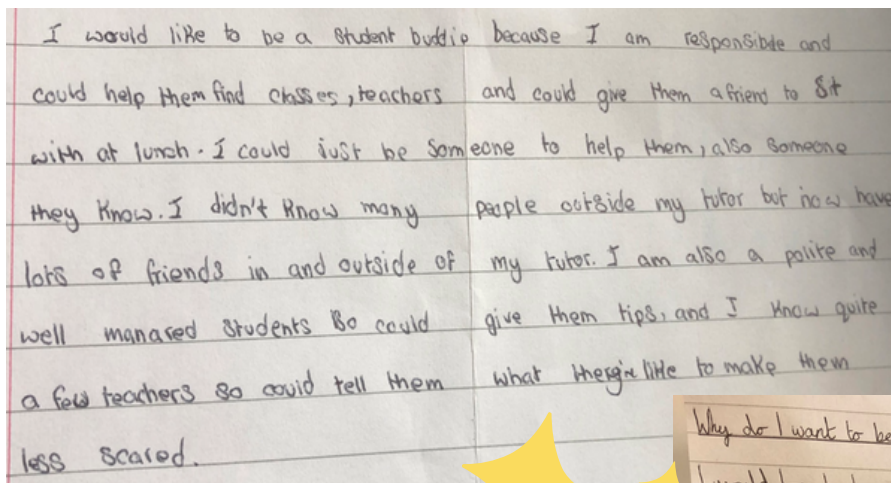 I would like to be a student buddie because I am responsible and
could help them find classes, teachers and could give them a friend to sit
with at lunch. I could just be someone to help them, also someone
they know. I didn't know many people outside my tutor but now have
lots of friends in and outside of my tutor. I am also a polite and
well manared students so could give them tips, and I know quite
a few teachers so could tell them what like to make them
less scared.
Why do I want to be